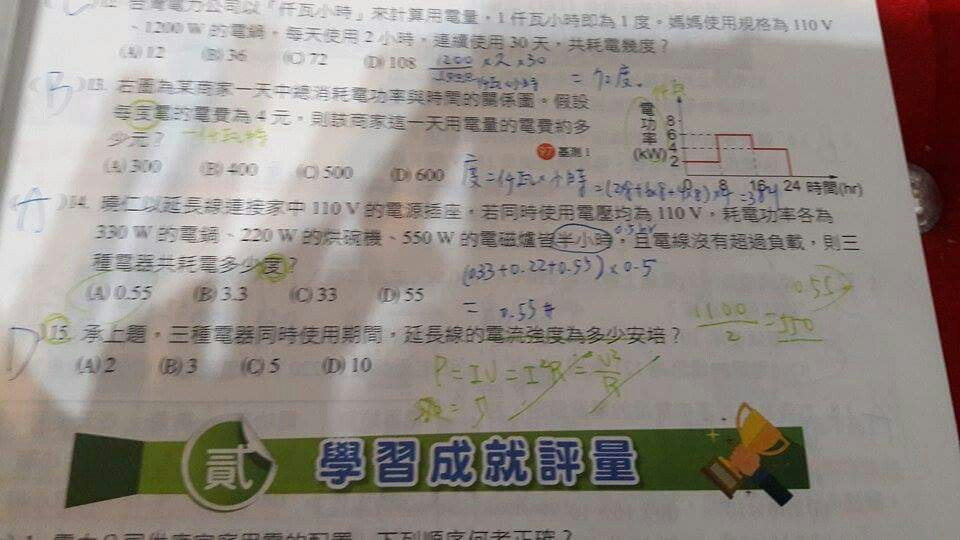 12. 台灣電力公司以「仟瓦小時」來計算用電量，1 仟瓦小時即為 1 度。媽媽使用規格為 110 V
、1200 W 的電鍋，每天使用 2 小時，連續使用 30 天，共耗電幾度？
(A) 12 (B) 36 (C) 72 (D) 108
1200 × 2 × 30
仟瓦小時
= 72度。
B
13. 右圖為某商家一天中總消耗電功率與時間的關係圖。假設
每度電的電費為 4 元，則該商家這一天用電量的電費約多
少元？
97 基測 1
(A) 300 (B) 400 (C) 500 (D) 600
電功率(kW)
8
6
4
2
0 8 16 24 時間(hr)
度=仟瓦×小時
A
14. 曉仁以延長線連接家中 110 V 的電源插座，若同時使用電壓均為 110 V，耗電功率各為
330 W 的電鍋、220 W 的烘碗機、550 W 的電磁爐皆半小時，且電線沒有超過負載，則三
種電器共耗電多少度？
(0.33+0.22+0.55)×0.5
(A) 0.55 (B) 3.3 (C) 33 (D) 55
= 0.55
1100/2 = 550
0.55
D
15. 承上題，三種電器同時使用期間，延長線的電流強度為多少安培？
(A) 2 (B) 3 (C) 5 (D) 10
P = IV = I²R = V²/R
貳 學習成就評量